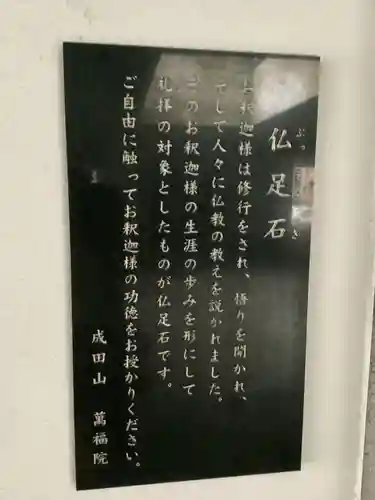 仏足石
ぶっそくせき
お釈迦様は修行をされ、悟りを開かれ、
そして人々に仏教の教えを説かれました。
このお釈迦様の生涯の歩みを形にして
礼拝の対象としたものが仏足石です。
ご自由に触ってお釈迦様の功徳をお授かりください。
成田山 萬福院